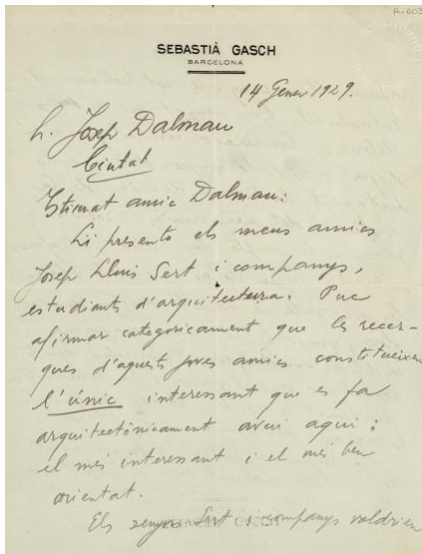 R-603
SEBASTIÀ GASCH
BARCELONA
14 Gener 1929.
Sr. Josep Dalmau
Ciutat
Estimat amic Dalmau:
Li presento els meus amics
Josep Lluis Sert i companys,
estudiants d'arquitectura. Puc
afirmar categoricament que les recer-
ques d'aquests joves amics constitueixen
l'únic interessant que es fa
arquitectònicament avui aquí:
el més interessant i el més ben
orientat.
Els senyors Sert i companys voldrien